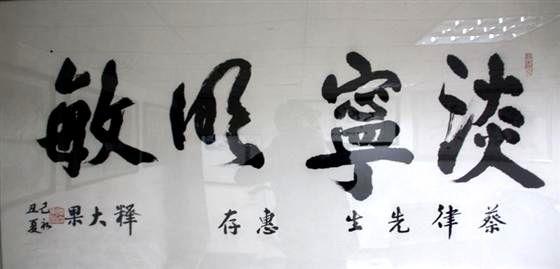 淡寧明敏
蔡律先生惠存 釋大果
己丑
初夏